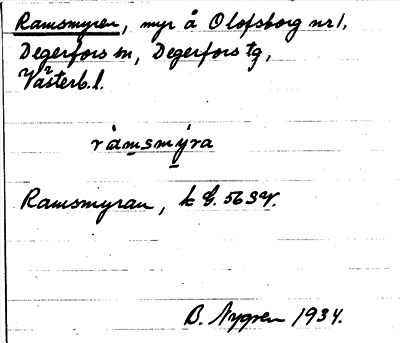 Ramsmyren, myr å Olofsborg nr 1,
Degerfors sn, Degerfors tg,
Västerb. l.
ràmsmýra
Ramsmyran, k G. 56 SV.
B. Nygren 1934.